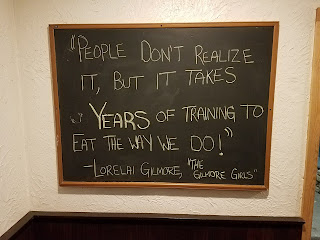 "People Don't Realize
it, But it takes
Years of training to
Eat the way we do!"
-Lorelai Gilmore, "The
Gilmore Girls"